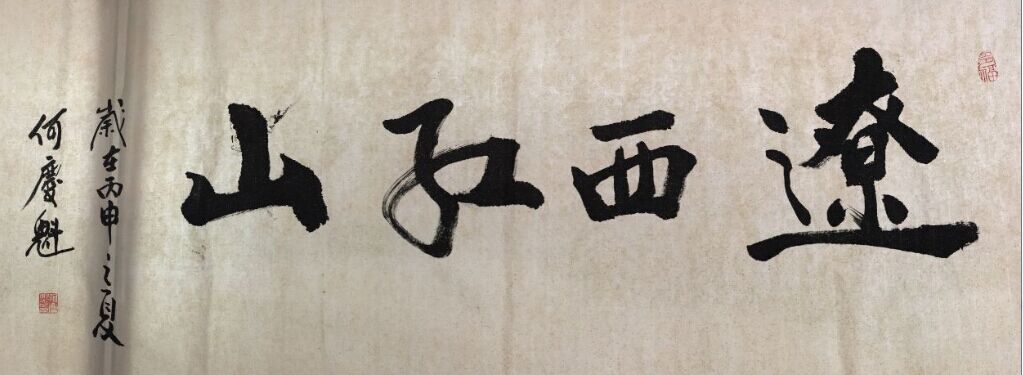 遼西紅山
歲在丙申之夏
何慶魁